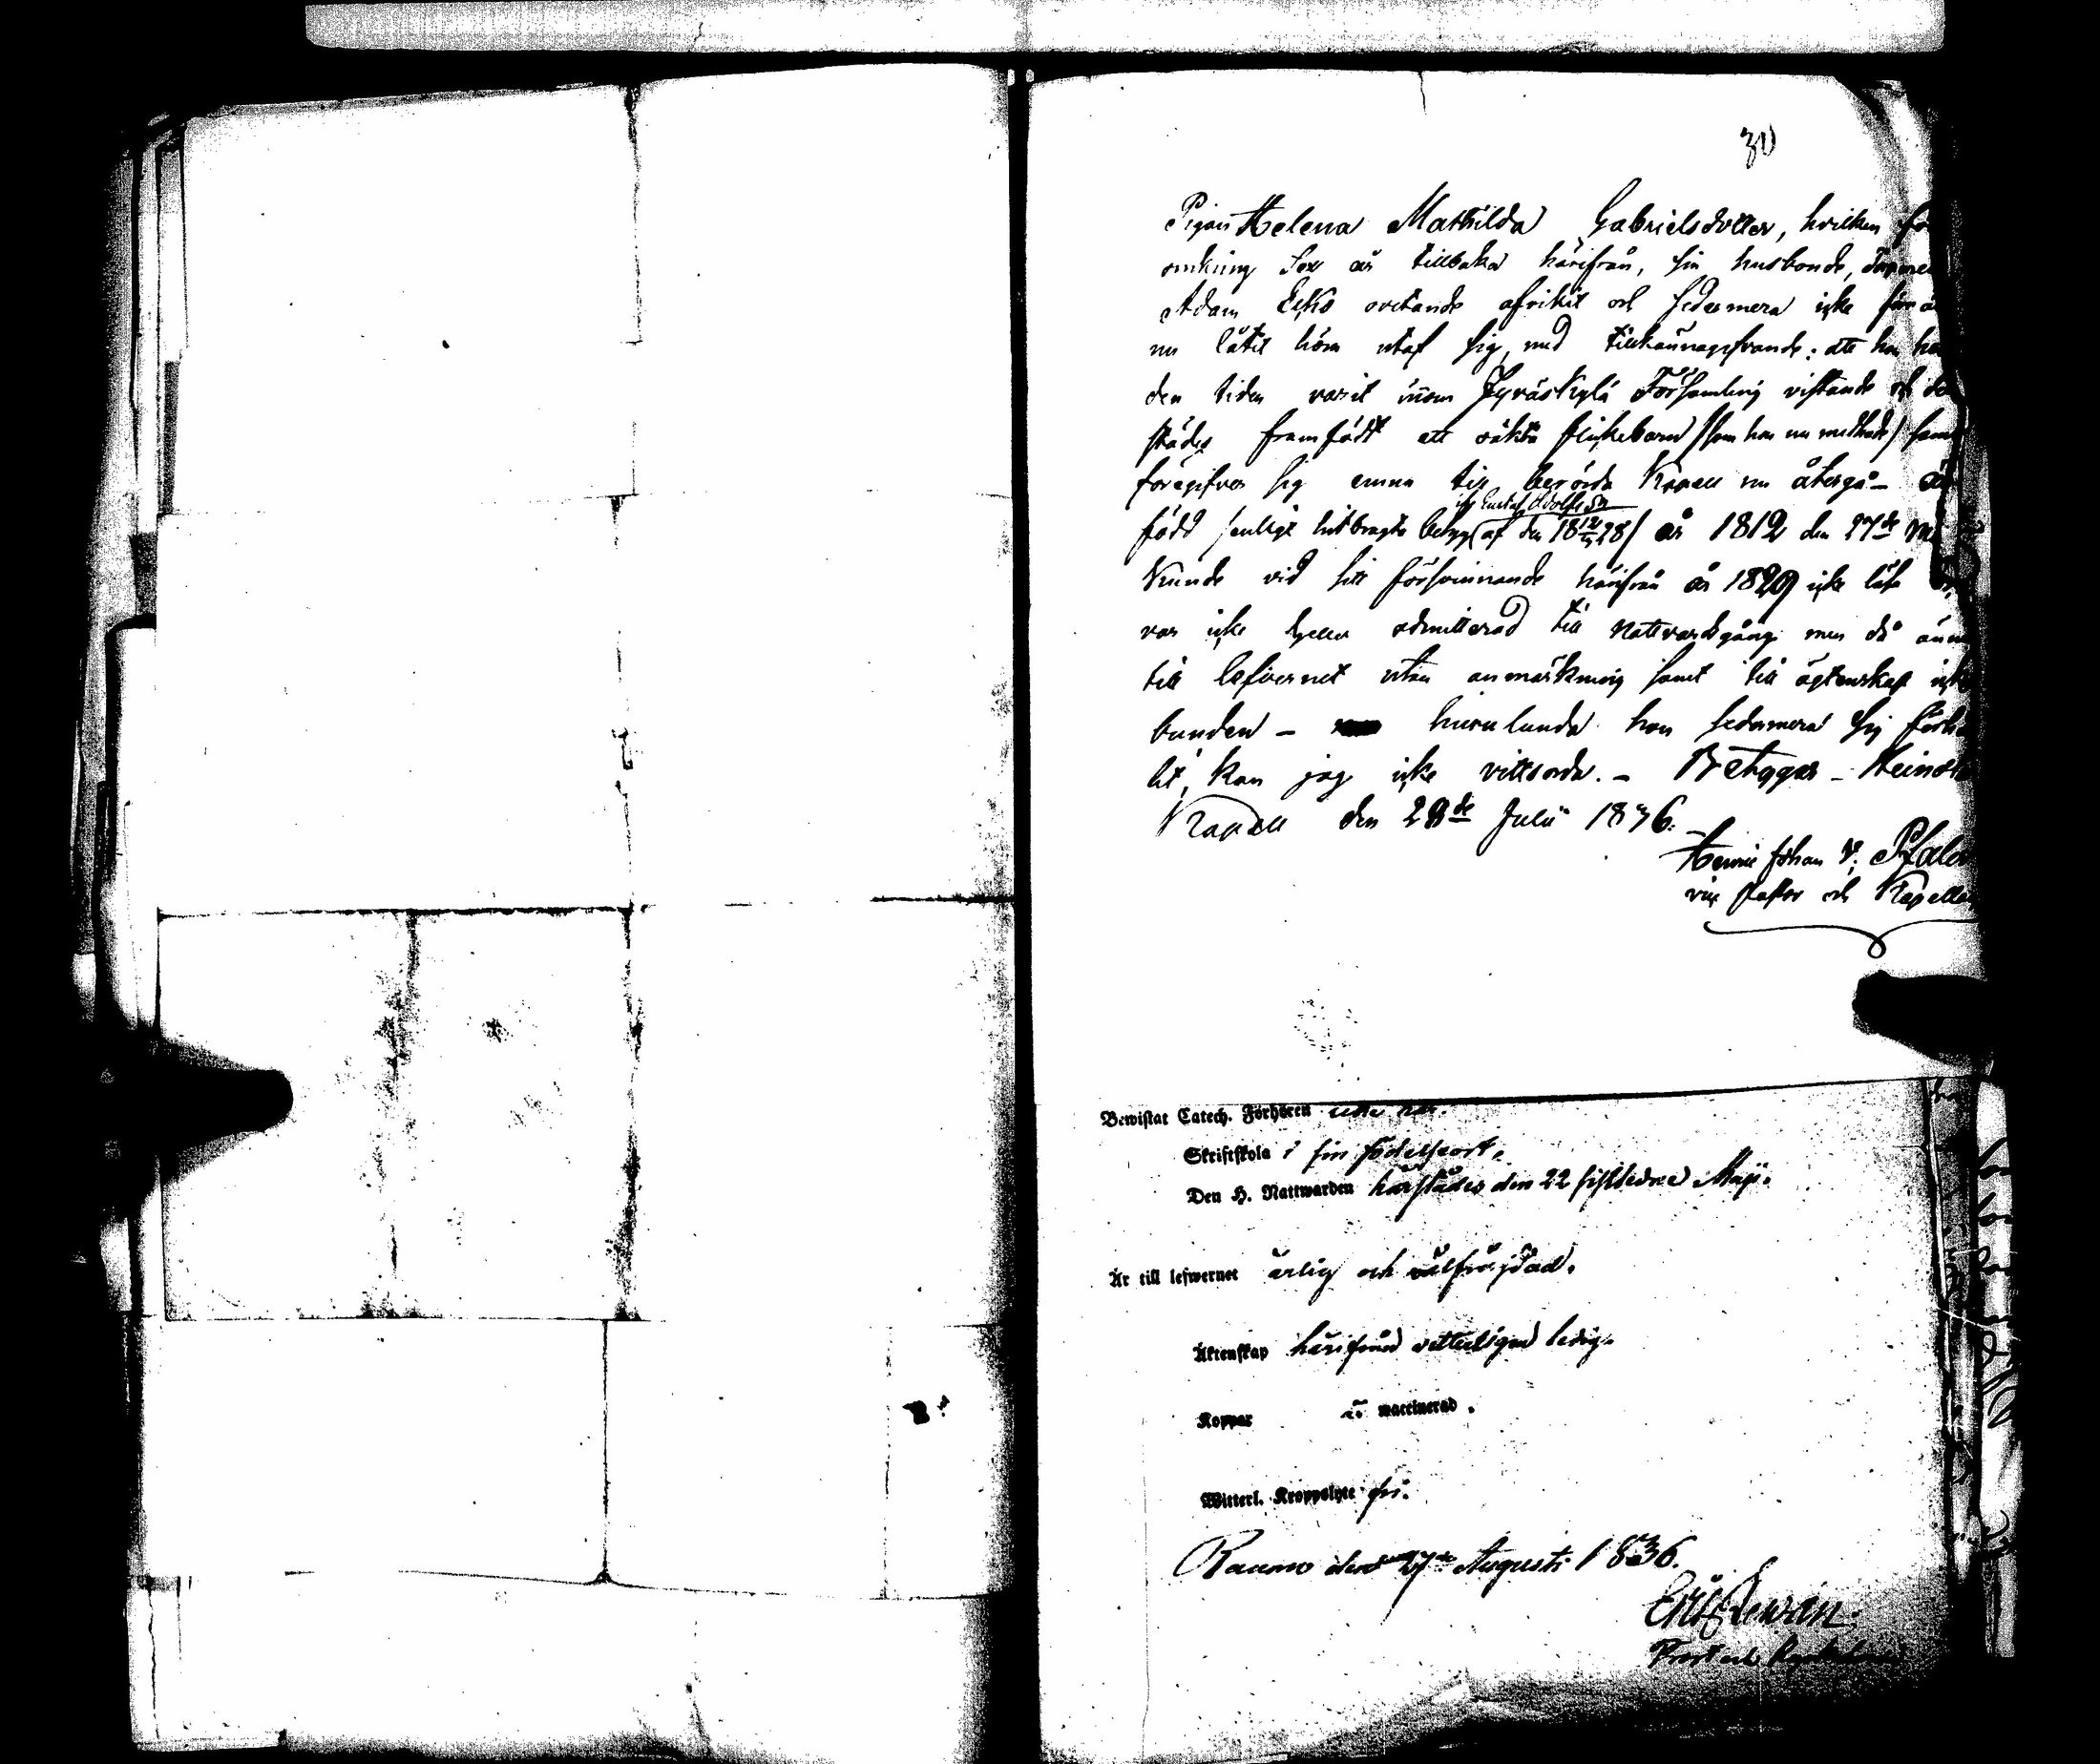 30
Pigan Helena Mathilda Gabrielsdotter, hvilken
omkring sex år tillbaka härifrån, sin husbonde,
Adam Ecko ovetande afvikit och sedermera icke
nu låtit höra utaf sig, med tillkännagifvande: att hon
den tiden varit inom Jyväskylä Församling vistande och
städes framfödt ett oäkta flickebarn /som hon nu medhade/
föregifver sig ämna till berörda Kapell nu återgå –
Gustaf Adolfs
född /enligt hitbragte betyg af den 18 28/ år 1812 den 27de
Kunde vid sitt försvinnande härifrån år 1829 icke läsa
var icke heller admitterad till nattvardsgång men då
till lefvernet utan anmärkning samt till ägtenskap
bunden – hurulunda hon sedermera sig
lit, kan jag icke vittsorda. – Betygar –
Kapell den 28de Julii 1836.
Henric Johan v.
vice Pastor och
Bewistat Catech. Förhören
Skriftskola i sin födelseort.
Den H. Nattwarden härstädes den 22 sistledne Maji.
Är till lefwernet ärlig och välfräjdad.
Äktenskap härifrån vetterligen ledig.
Koppar vaccinerad.
Witterl. Kroppslyte fri.
Raumo den 27de Augusti 1836.
Prost och